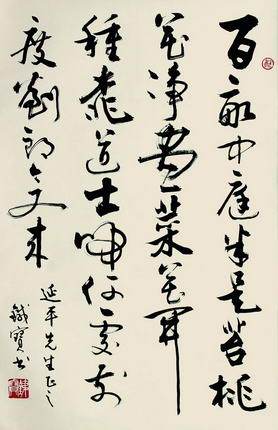 百畝中庭半是苔桃
花净盡菜花開
種桃道士歸何處前
度劉郎今又來
延平先生正之
鐵寶书